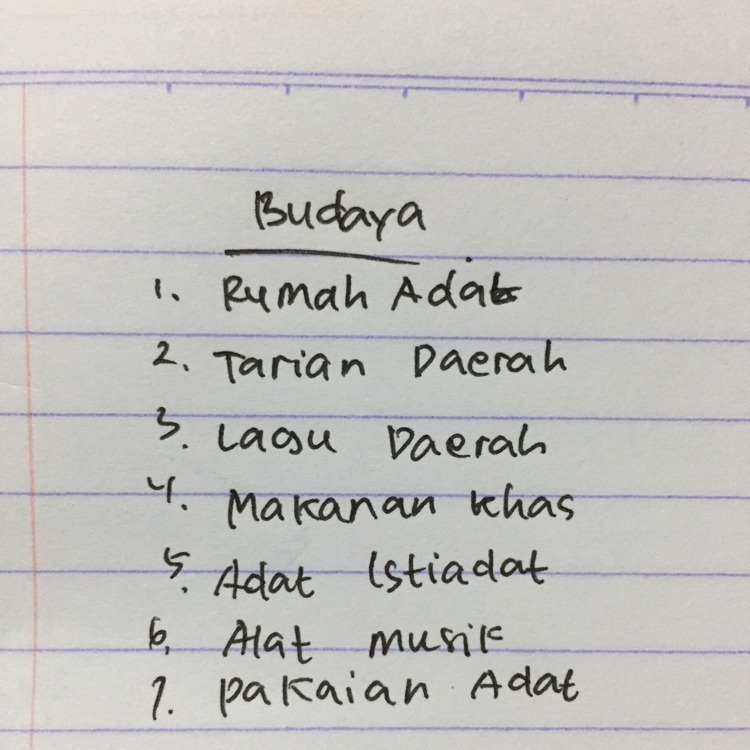 Budaya
1. Rumah Adat
2. Tarian Daerah
3. Lagu Daerah
4. Makanan khas
5. Adat Istiadat
6. Alat musik
7. pakaian Adat